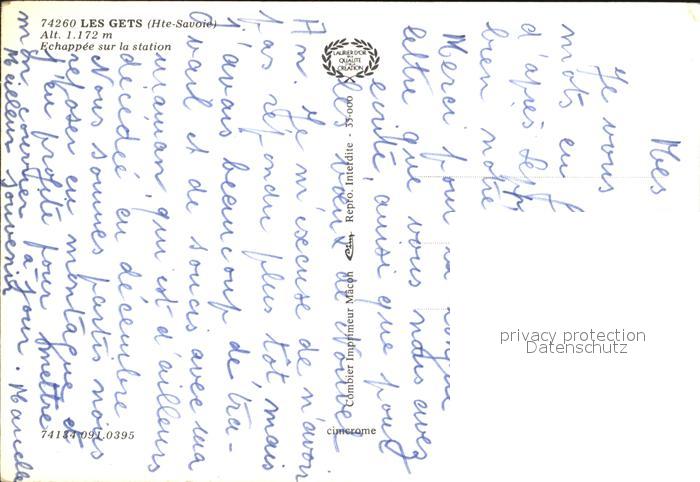 74260 LES GETS (Hte-Savoie)
Alt. 1.172 m
Echappée sur la station
LAURIER D'OR
DE
QUALITÉ
DE LA
CRÉATION
Combier Imprimeur Mâcon
Cim
Repro. Interdite - 35-000
cimcrome
74134 091.0395
privacy protection
Datenschutz
Mes
Je vous
mots en
d'après
bien notre
Merci pour
lettre que vous nous avez
écrite ainsi que pour
les vœux de nouvel
An. Je m'excuse de n'avoir
pas répondu plus tôt mais
j'avais beaucoup de tra-
vail et de soucis avec ma
maman qui est d'ailleurs
décédée en décembre
Nous sommes partis nous
reposer en montagne et
j'en profite pour mettre
mon courrier à jour.
Meilleur souvenir